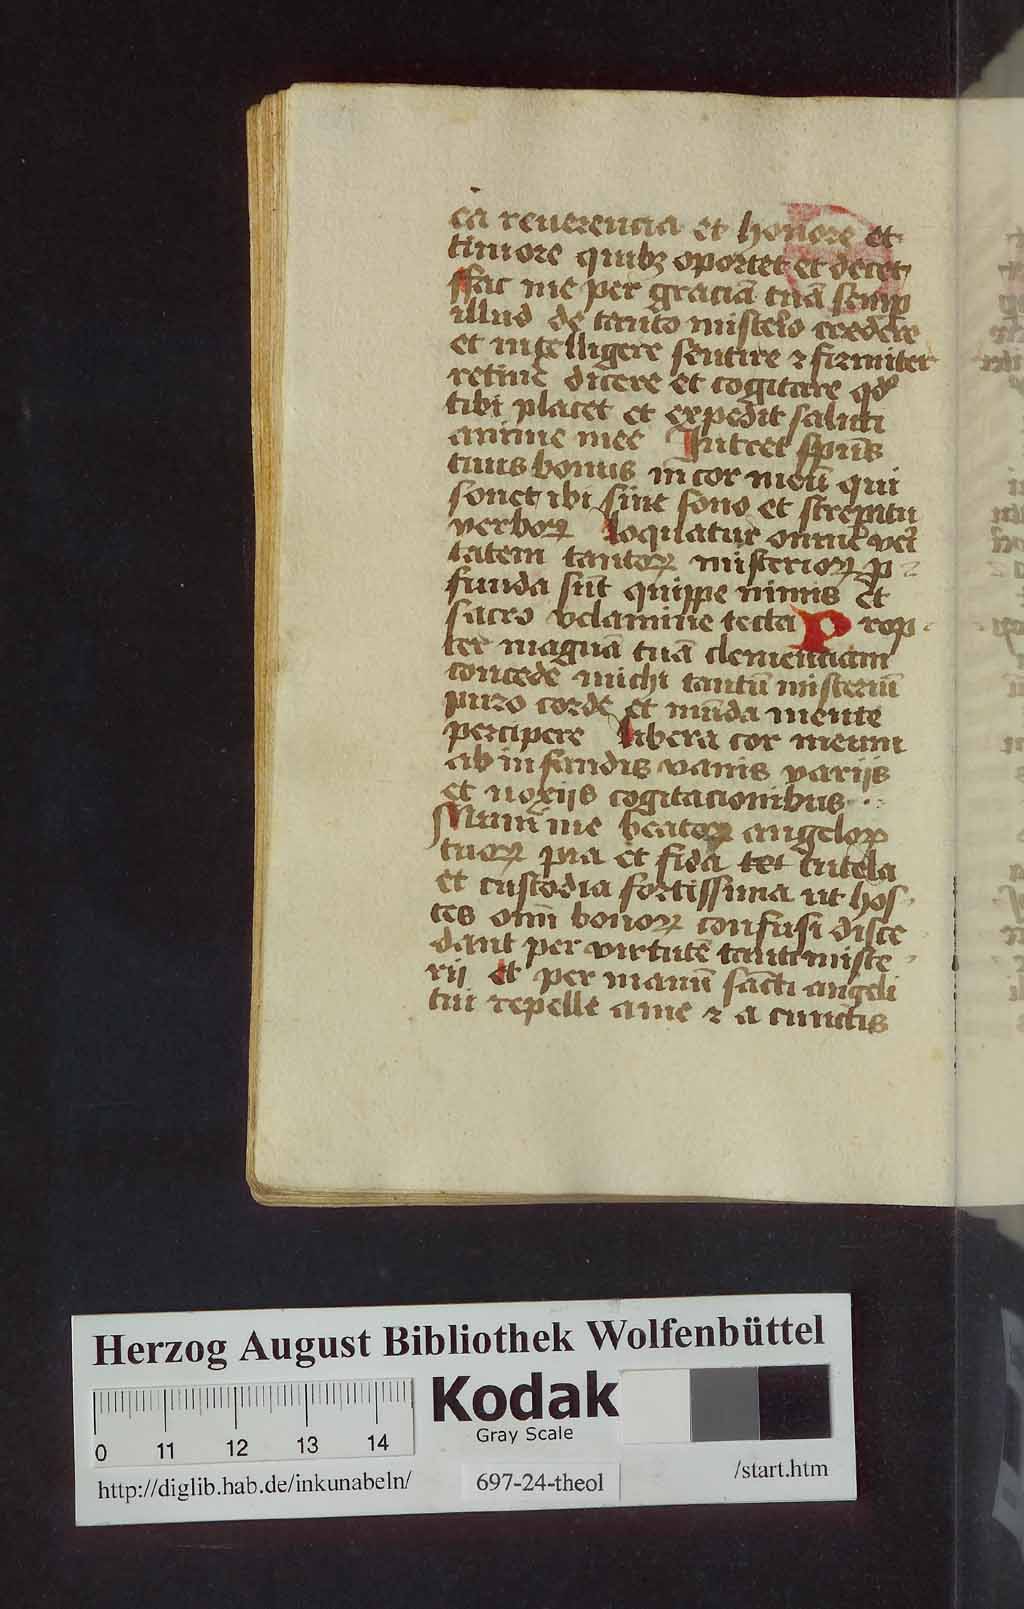 ea reuerencia et honore et
timore quibꝫ oportet et decet
ffac me per graciā tuā semp
illud de tanto misterˀo credere
et intelligere sentire ⁊ firmiter
retinē dicere et cogitare qd̕
tibi placet et expedit saluti
anime mee Intret spūs
tuus bonus in cor meū qui
sonet ibi sine sono et strepitu
verboꝝ loquatur omnē veri
tatem tantoꝝ misterioꝝ p
funda sūt quippe nimis et
sacro velamine tecta Prop
ter magnā tuā clementiam
concede michi tantū misteriū
puro corde et mūda mente
percipere libera cor meum
ab infandis vanis variis
et noxiis cogitacionibus
Muni me beatoꝝ angeloꝝ
tuoꝝ pia et fida tutela
et custodia fortissima ut hos
tes om̄ bonoꝝ confusi disce
dant per virtutē tanti miste
rii et per manū sācti angeli
tui repelle a me ⁊ a cunctis
Herzog August Bibliothek Wolfenbüttel
Kodak
Gray Scale
0 11 12 13 14
http://diglib.hab.de/inkunabeln/ 697-24-theol /start.htm